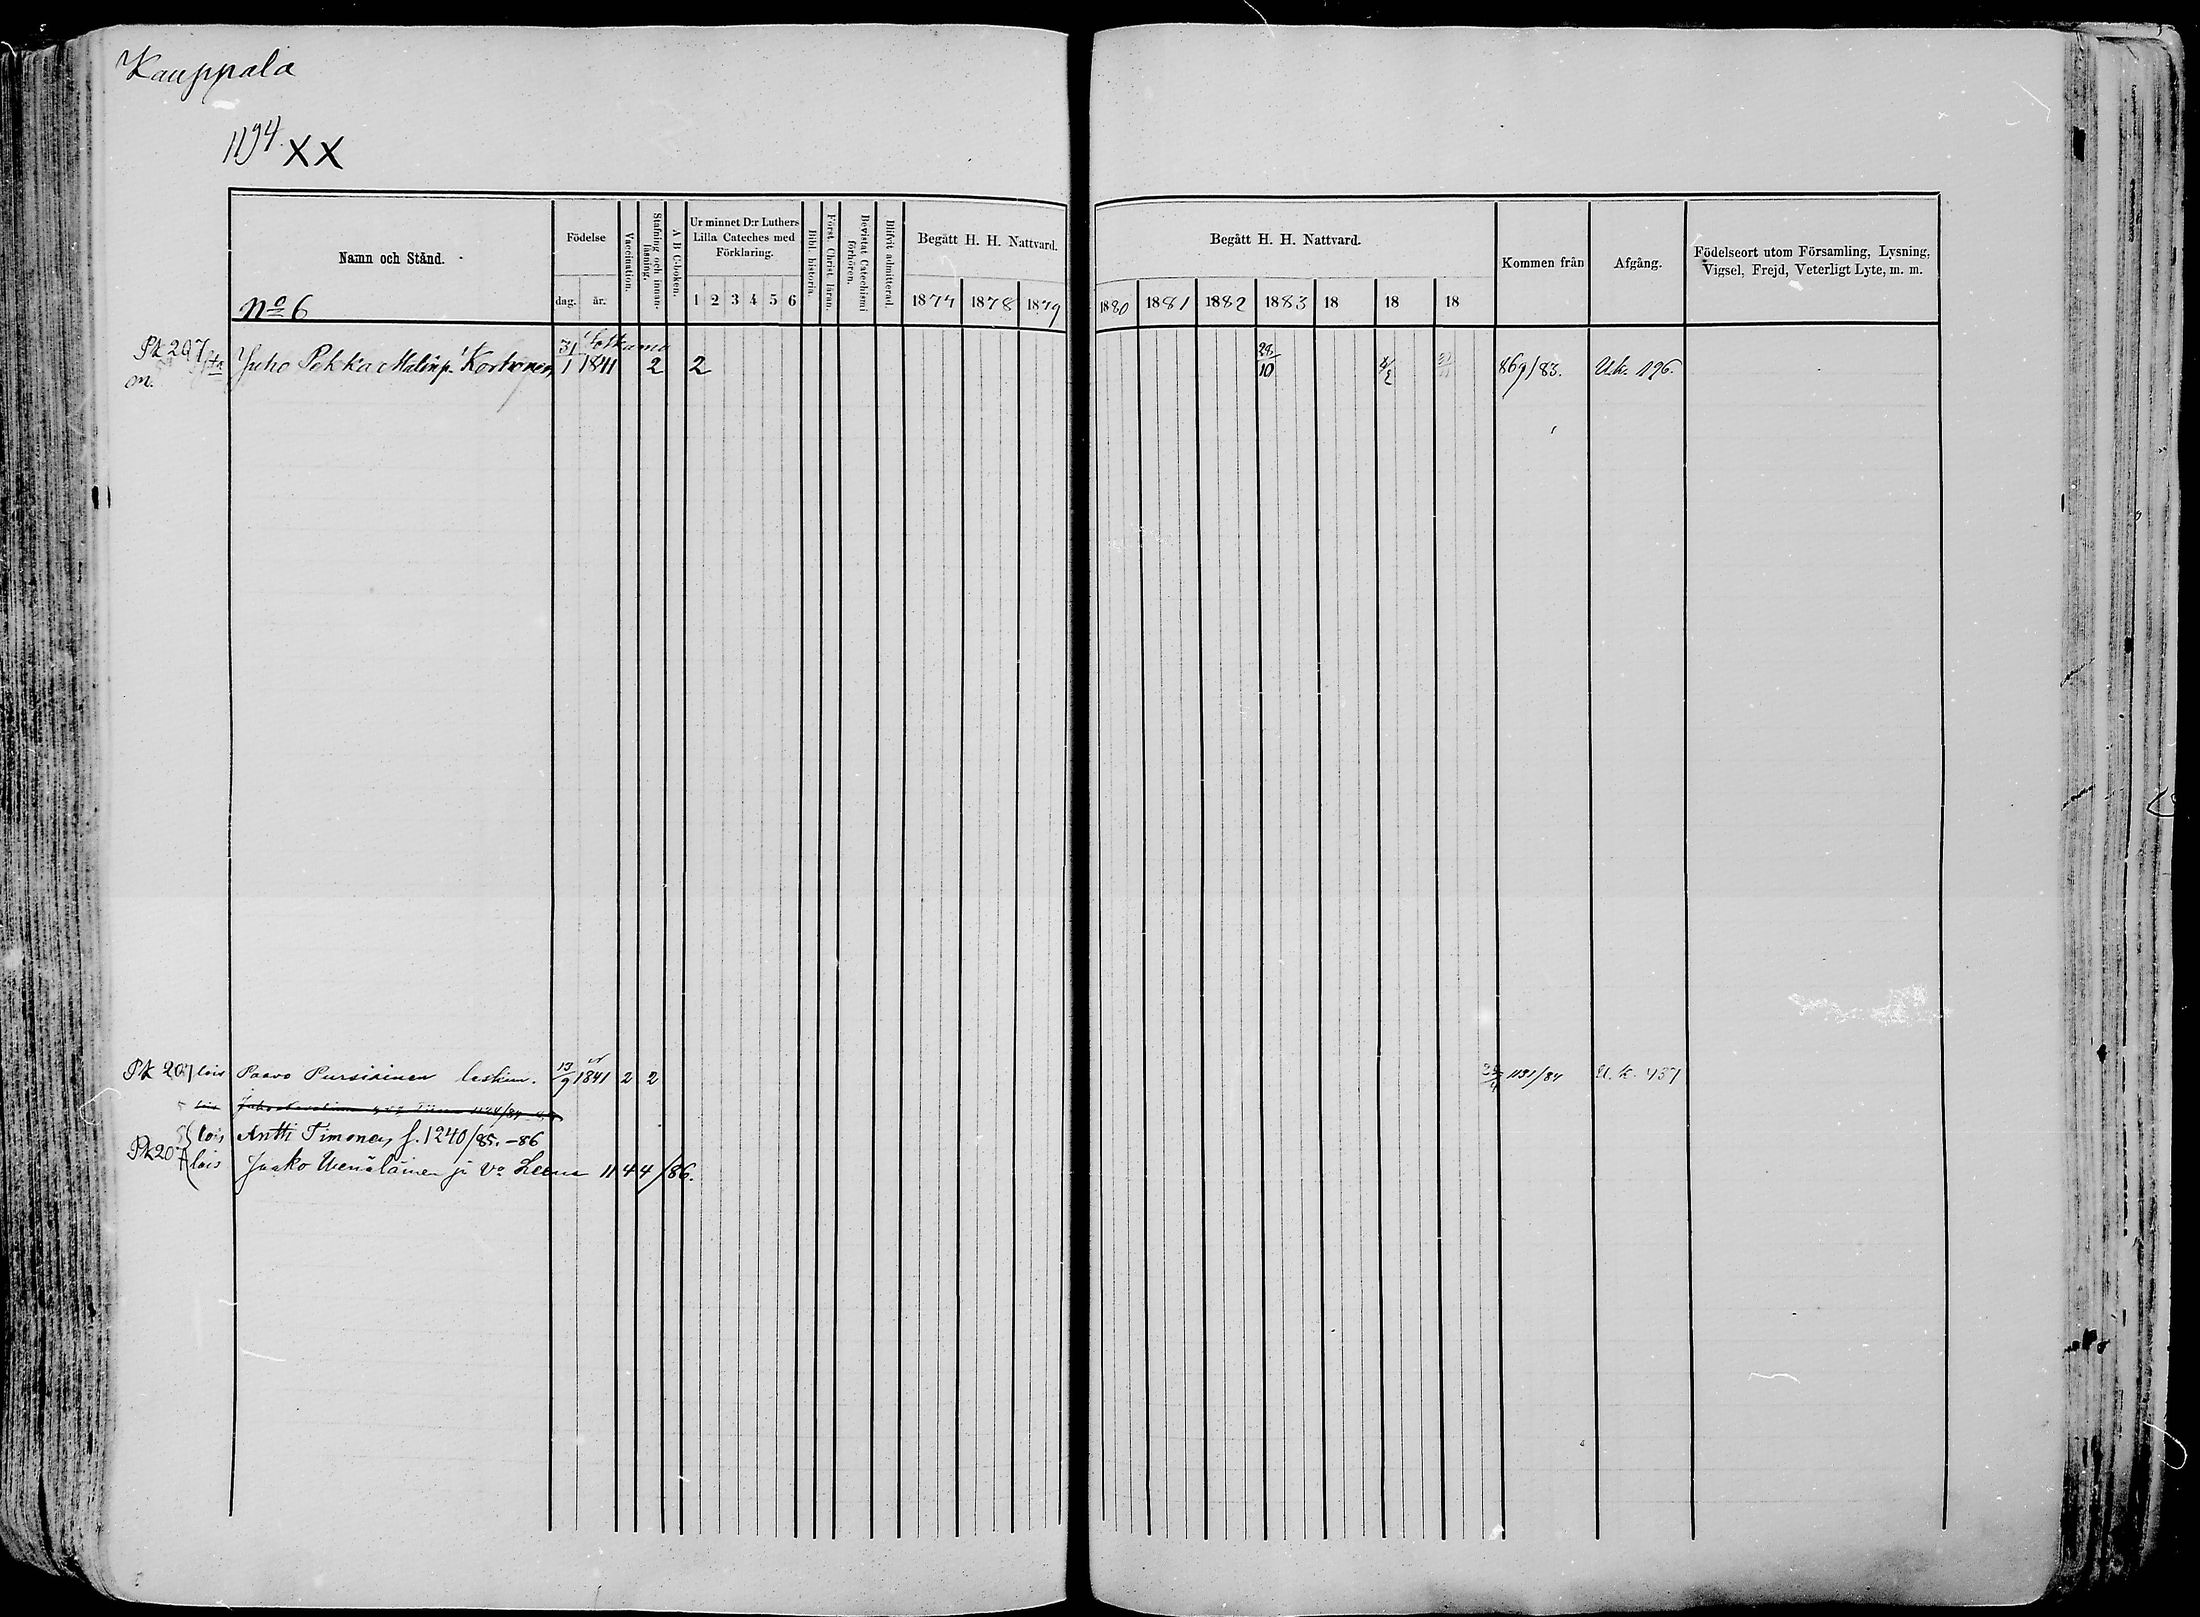 Kauppala
1194. XX
Namn och Stånd.
Födelse
dag. år.
Vaccination.
Stafning och innanläsning.
A B C-boken.
Ur minnet D:r Luthers Lilla Cateches med Förklaring.
1 2 3 4 5 6
Bibl. historia.
Först. Christ. läran.
Bevistat Catechismi förhören.
Blifvit admitterad.
Begått H. H. Nattvard.
1877 1878 1879
Begått H. H. Nattvard.
1880 1881 1882 1883 18 18 18
Kommen från
Afgång.
Födelseort utom Församling, Lysning, Vigsel, Frejd, Veterligt Lyte, m. m.
No 6
Pk 207
Sotkamo
m. Juho Pekka Malinp. Kortonen 31/1 1841 2 2 28/10 869/83. U.k. 196.
Pk 207 lois Paavo Pursiainen leskim. 13/9 1841 2 2 1131/84 U.k. 437
lois Antti Timonen f. 1240/85. -86
Pk 207 lois Jaako Wenäläinen ja Vo Leena 1144/86.